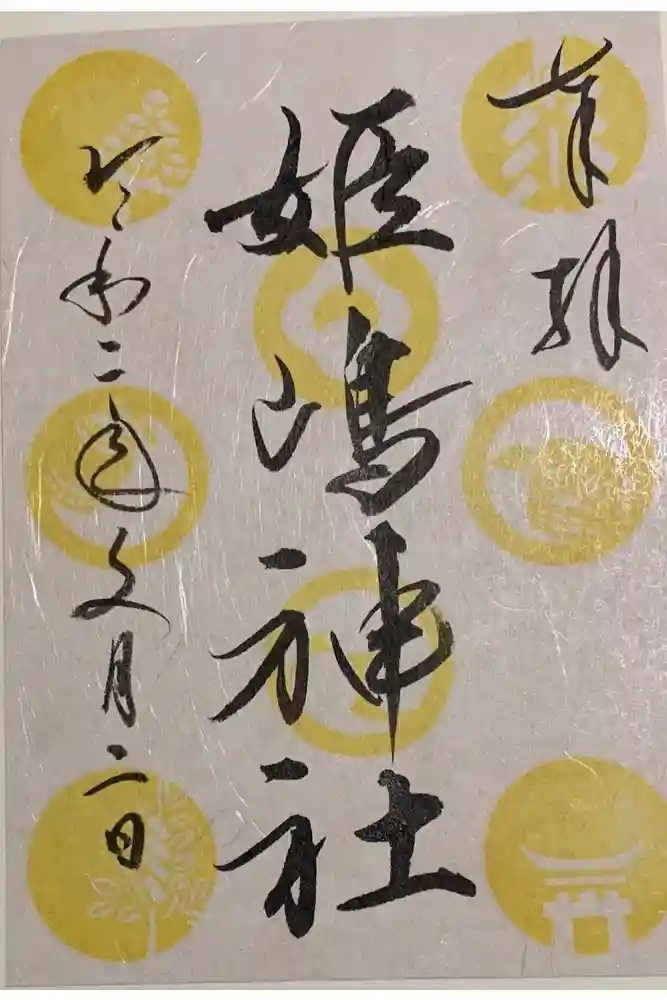 奉拝
姫嶋神社
令和二年文月二日